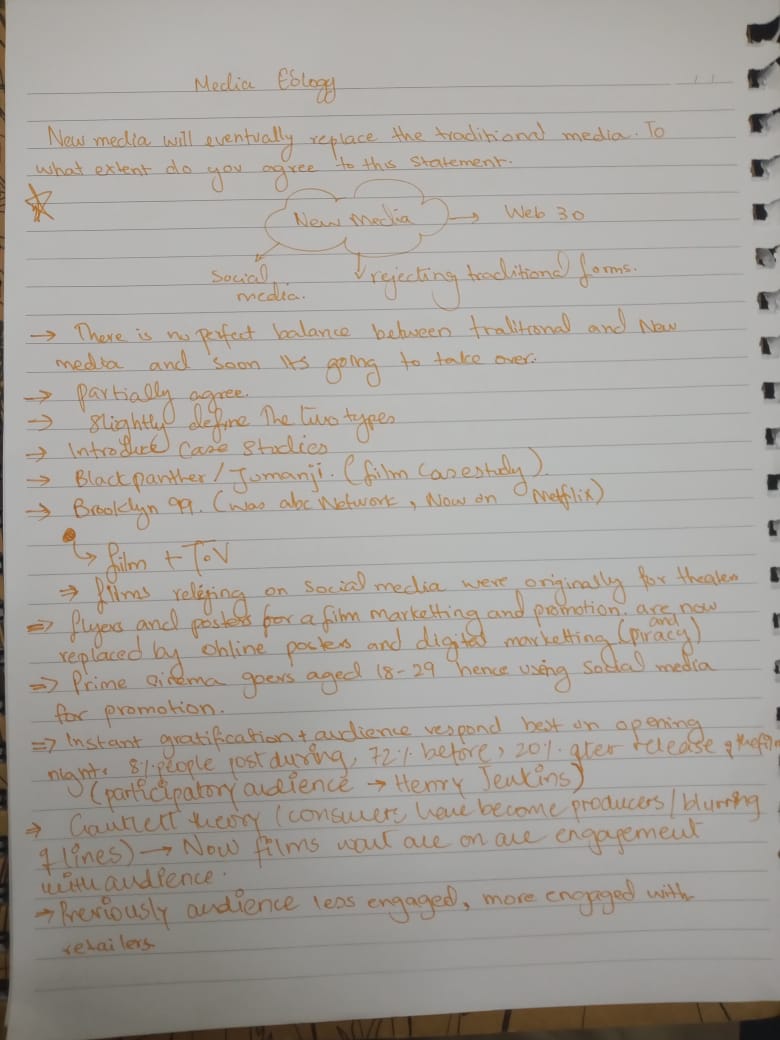 Media Eology
New media will eventually replace the traditional media. To
what extent do you agree to this statement.
New Media → Web 3.0
Social media.
rejecting traditional forms.
→ There is no perfect balance between traditional and New
media and soon its going to take over.
→ partially agree.
→ slightly define The two types
→ Introduce Case Studies
→ Black panther / Jumanji. (film case study)
→ Brooklyn 99. (was abc Network, Now on Netflix)
↳ film + T.V
⇒ films relying on social media were originally for
⇒ flyers and posters for a film marketting and promotion. are now
replaced by online posters and digital marketting (piracy) and
⇒ Prime cinema goers aged 18-29 hence using social media
for promotion.
⇒ Instant gratification + audience respond best on opening
night. 8% people post during, 72% before, 20% after release of the film
(participatory audience → Henry Jenkins)
→ Gauntlett theory (consumers have become producers / blurring
of lines) → Now films want are on are engagement
with audience.
→ Previously audience less engaged, more engaged with
retailers